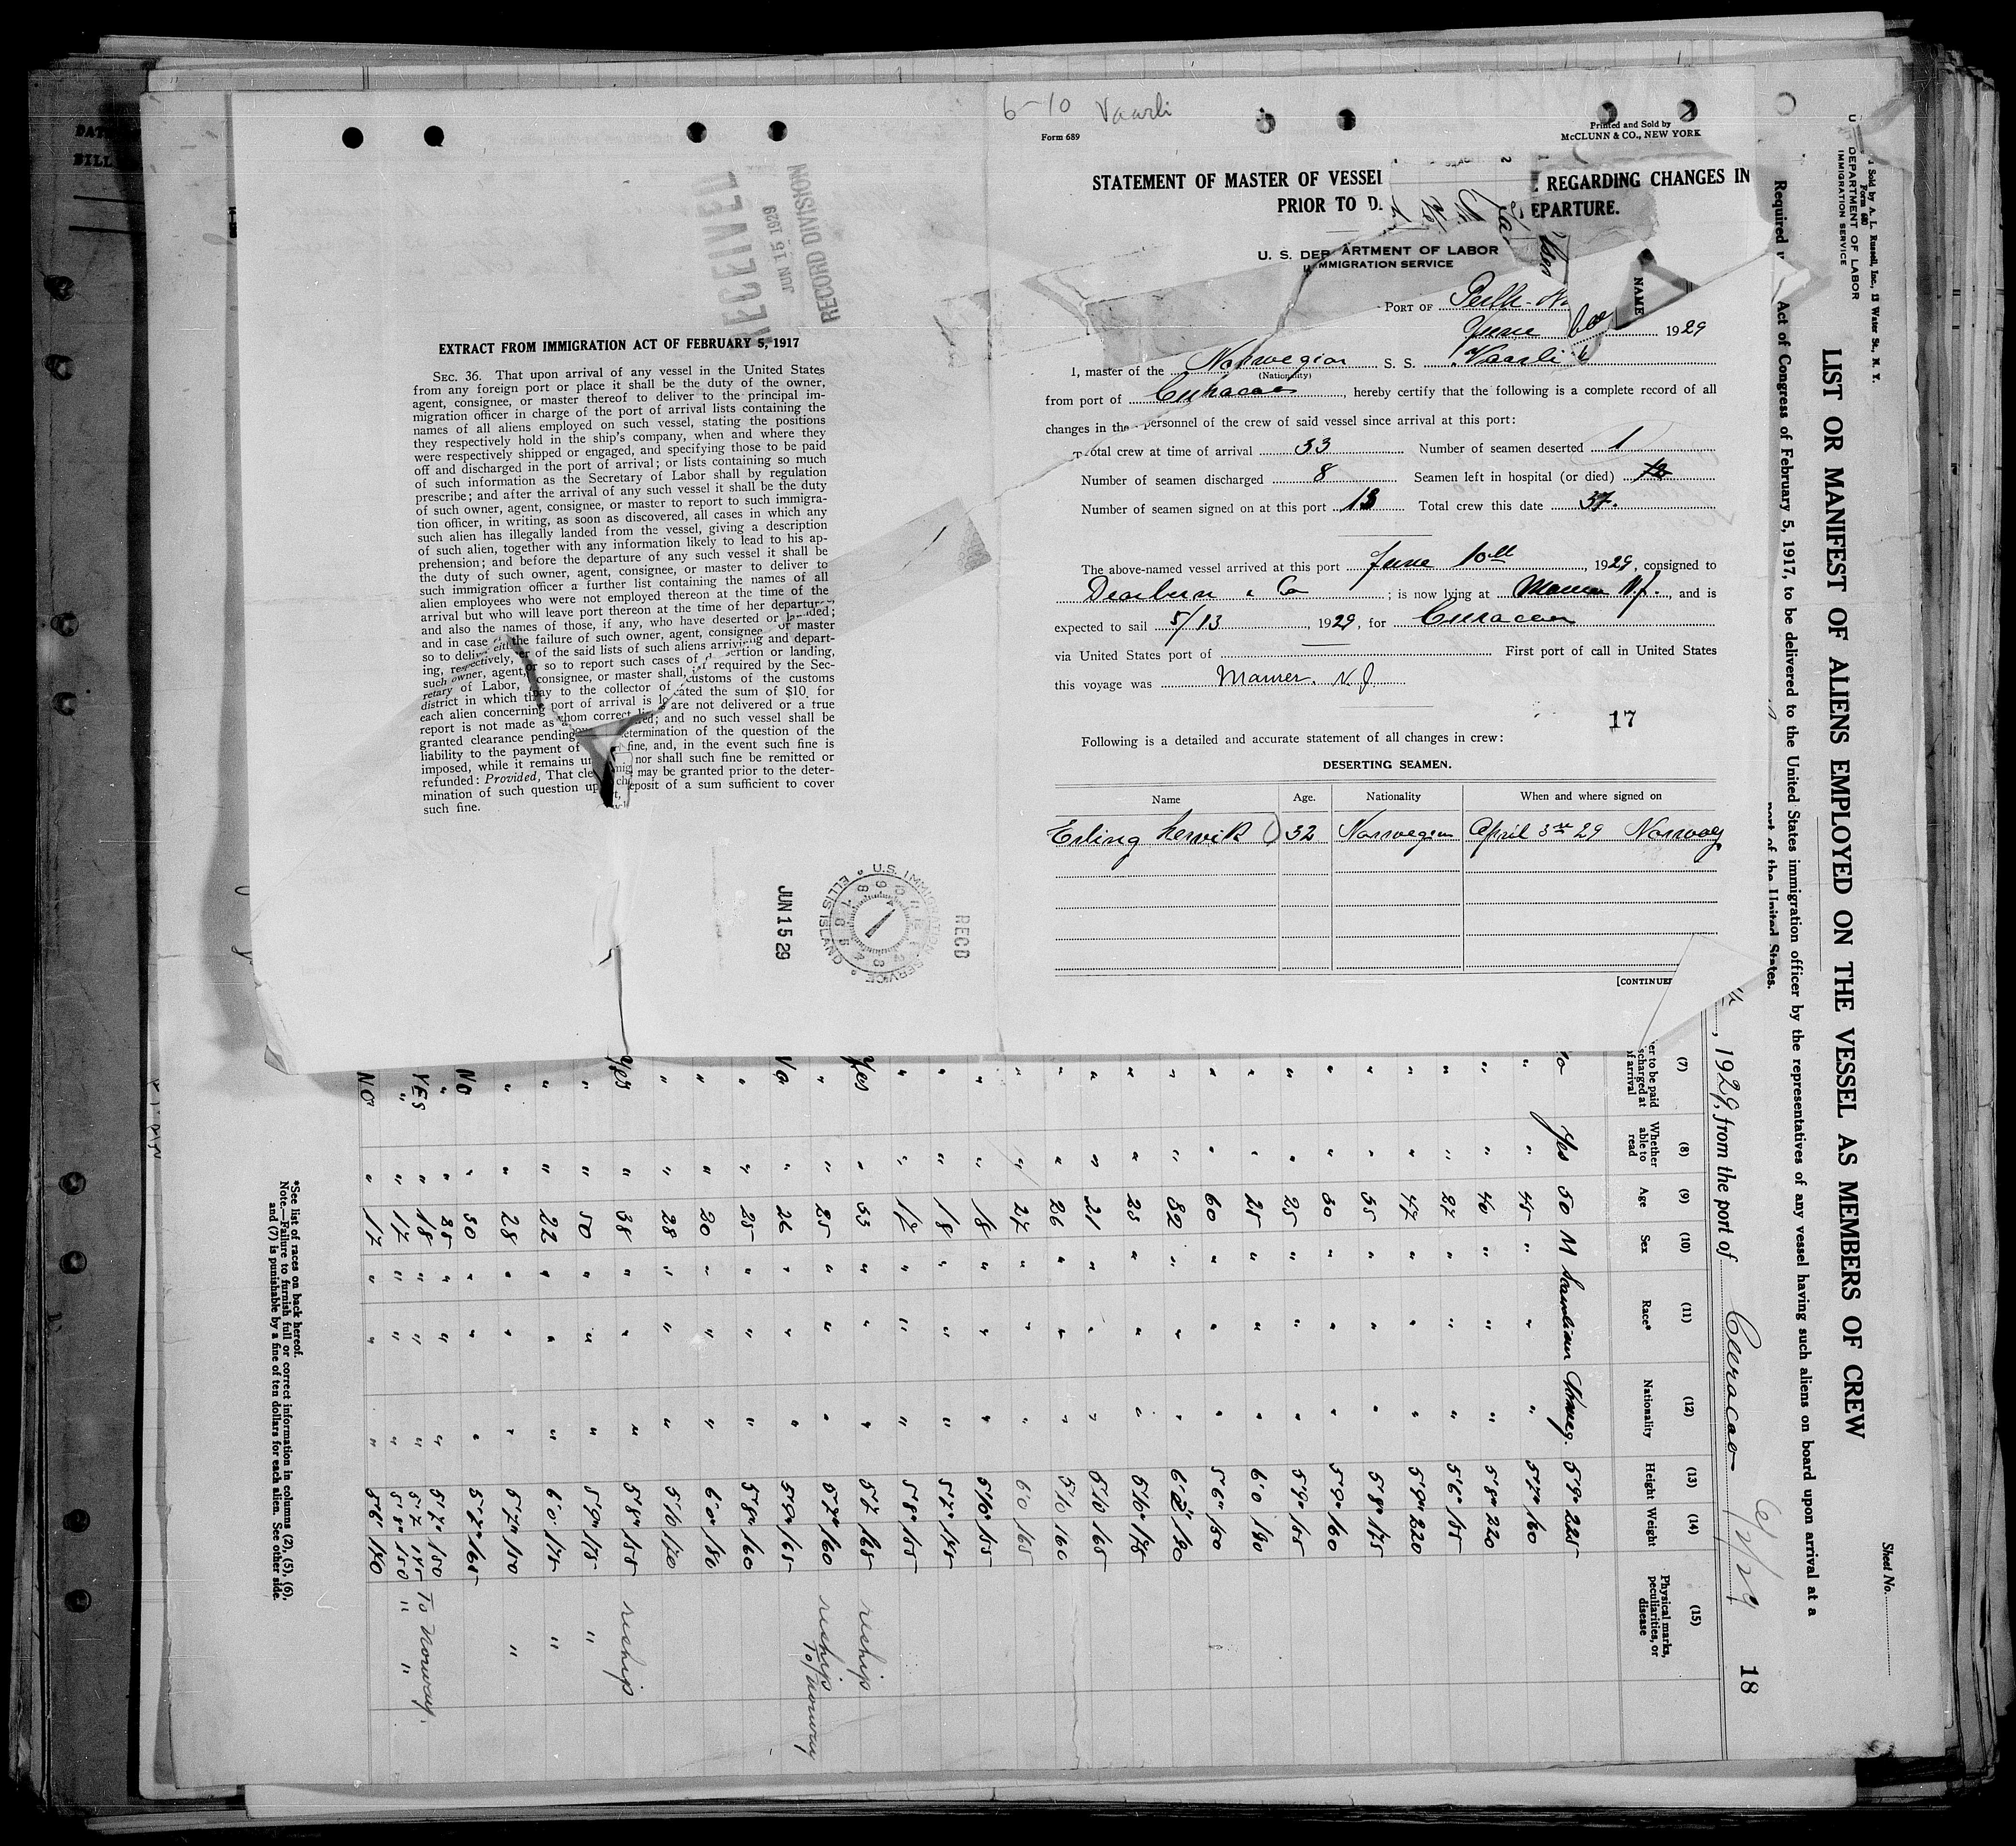 6-10 Vaarli
Form 689
Printed and Sold by
McCLUNN & CO., NEW YORK
STATEMENT OF MASTER OF VESSEL REGARDING CHANGES IN
PRIOR TO DEPARTURE.
U. S. DEPARTMENT OF LABOR
IMMIGRATION SERVICE
NAME
PORT OF Perth
June 1929
I, master of the Norwegian S. S. Vaarli
(Nationality)
from port of Curacao, hereby certify that the following is a complete record of all
changes in the personnel of the crew of said vessel since arrival at this port:
Total crew at time of arrival 33 Number of seamen deserted 1
Number of seamen discharged 8 Seamen left in hospital (or died)
Number of seamen signed on at this port 13 Total crew this date 37.
The above-named vessel arrived at this port June 10th, 1929, consigned to
Dearburn & Co; is now lying at Maurer N.J., and is
expected to sail 5/13, 1929, for Curacao
via United States port of First port of call in United States
this voyage was Maurer. N.J.
17
Following is a detailed and accurate statement of all changes in crew:
DESERTING SEAMEN.
Name Age. Nationality When and where signed on
Erling 32 Norwegian April 3rd 29 Norway
[CONTINUED
RECEIVED
JUN 15 1929
RECORD DIVISION
EXTRACT FROM IMMIGRATION ACT OF FEBRUARY 5, 1917
SEC. 36. That upon arrival of any vessel in the United States
from any foreign port or place it shall be the duty of the owner,
agent, consignee, or master thereof to deliver to the principal im-
migration officer in charge of the port of arrival lists containing the
names of all aliens employed on such vessel, stating the positions
they respectively hold in the ship's company, when and where they
were respectively shipped or engaged, and specifying those to be paid
off and discharged in the port of arrival; or lists containing so much
of such information as the Secretary of Labor shall by regulation
prescribe; and after the arrival of any such vessel it shall be the duty
of such owner, agent, consignee, or master to report to such immigra-
tion officer, in writing, as soon as discovered, all cases in which any
such alien has illegally landed from the vessel, giving a description
of such alien, together with any information likely to lead to his ap-
prehension; and before the departure of any such vessel it shall be
the duty of such owner, agent, consignee, or master to deliver to
such immigration officer a further list containing the names of all
alien employees who were not employed thereon at the time of the
arrival but who will leave port thereon at the time of her departure,
and also the names of those, if any, who have deserted or landed;
and in case of the failure of such owner, agent, consignee or master
so to deliver either of the said lists of such aliens arriving and depart-
ing, respectively, or so to report such cases of desertion or landing,
such owner, agent, consignee, or master shall, if required by the Sec-
retary of Labor, pay to the collector of customs of the customs
district in which the port of arrival is located the sum of $10 for
each alien concerning whom correct lists are not delivered or a true
report is not made as required; and no such vessel shall be
granted clearance pending determination of the question of the
liability to the payment of fine, and, in the event such fine is
imposed, while it remains un nor shall such fine be remitted or
refunded: Provided, That cle may be granted prior to the deter-
mination of such question up deposit of a sum sufficient to cover
such fine.
RECD
U.S. IMMIGRATION SERVICE
ELLIS ISLAND
JUN 15 29
Sold by A. L. Russell, Inc., 13 Water St., N. Y.
Form 680
U. S. DEPARTMENT OF LABOR
IMMIGRATION SERVICE
Sheet No.
LIST OR MANIFEST OF ALIENS EMPLOYED ON THE VESSEL AS MEMBERS OF CREW
Required Act of Congress of February 5, 1917, to be delivered to the United States immigration officer by the representatives of any vessel having such aliens on board upon arrival at a
port of the United States.
, 1929, from the port of Curacao 18
(7) (8) (9) (10) (11) (12) (13) (14) (15)
er to be paid
scharged at
of arrival
Whether
able to
read
Age
Sex
Race*
Nationality
Height
Weight
Physical marks,
peculiarities, or
disease
Yes 50 M Scandinav Norweg. 5'9" 225
" " 45 " " " 5'7" 160
" " 40 " " " 5'8" 220
" " 27 " " " 5'6" 155
" " 47 " " " 5'9" 220
" " 35 " " " 5'8" 175
" " 30 " " " 5'9" 160
" " 25 " " " 5'9" 155
" " 25 " " " 6'0 180
" " 60 " " " 5'6" 150
" " 32 " " " 190
" " 23 " " " 5'10" 175
" " 21 " " " 5'10 165
" " 26 " " " 5'10 160
" " 27 " " " 6'0 165
" " 18 " " " 5'10" 155
" " 18 " " " 5'7" 145
" " 17 " " " 5'8" 155
Yes " 33 " " " 5'7 165 reship
" " 25 " " " 5'7" 160 reship To Norway
No " 26 " " " 5'9" 165
" " 25 " " " 5'8" 160
" " 20 " " " 6'0" 180
" " 28 " " " 5'10 170
Yes " 38 " " " 5'8" 155 reship
" " 50 " " " 5'9" 175 "
" " 22 " " " 6'0" 175 "
" " 28 " " " 5'7" 150 "
No " 30 " " " 5'7" 165
" " 35 " " " 5'7" 150
YES " 18 " " " 5'7 145 To Norway.
" " 17 " " " 5'8" 150 " "
NO " 17 " " " 5'6" 140
*See list of races on back hereof.
Note.—Failure to furnish full or correct information in columns (2), (5), (6),
and (7) is punishable by a fine of ten dollars for each alien. See other side.